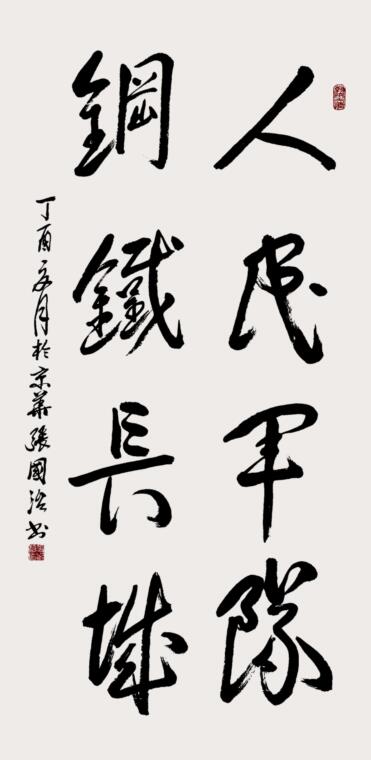 人民军隊
鋼鐵長城
丁酉年月於京華張國治书